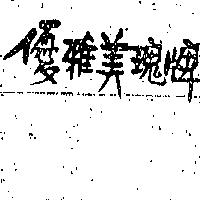 優雅美瑰牌